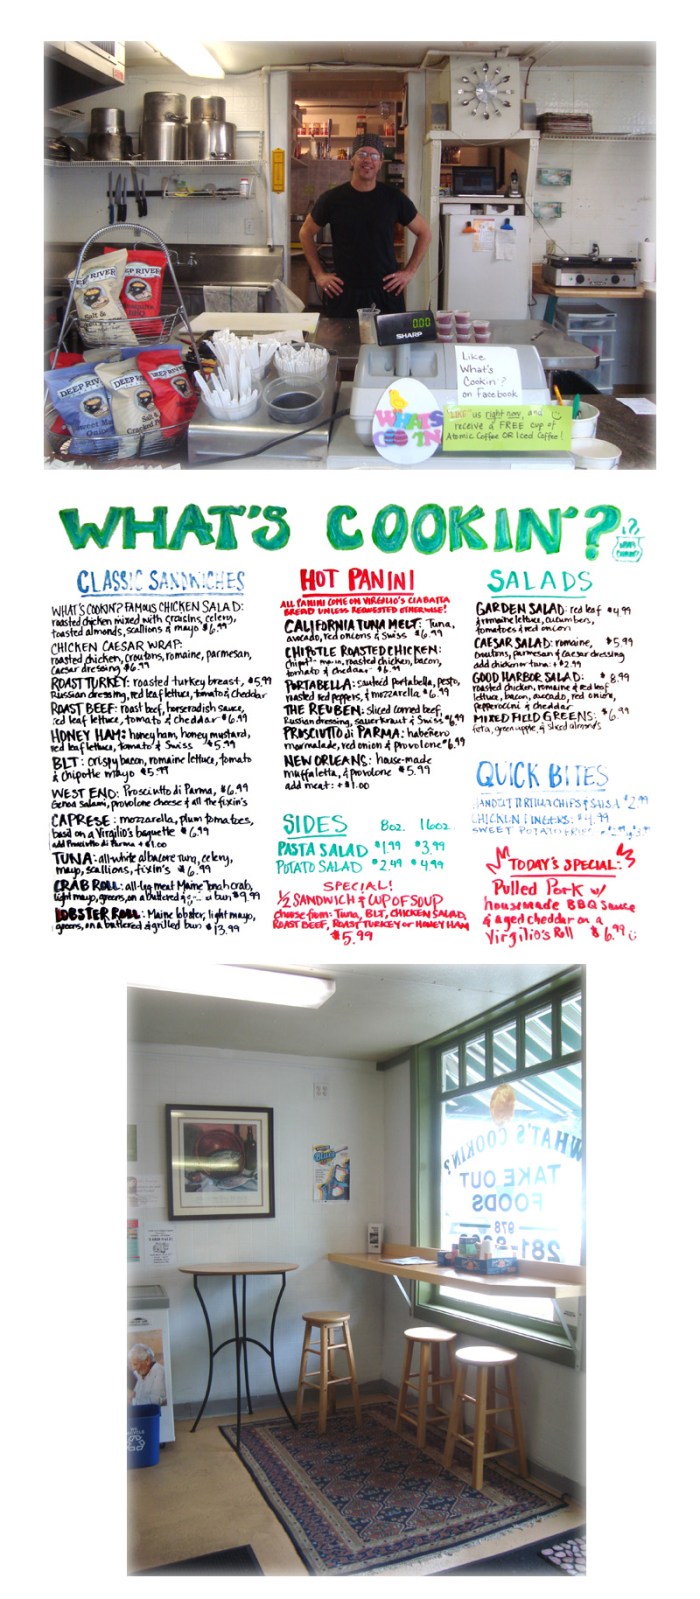 DEEP RIVER
DEEP RIVER
Salt &
DEEP RIVER
DEEP RIVER
DEEP RIVER
Sweet Maui
Onion
Salt &
Cracked Pepper
0.00
SHARP
Like
What's
Cookin'?
on Facebook
WHATS
COOKIN
"LIKE" us right now, and
receive a FREE cup of
Atomic Coffee OR Iced Coffee!
WHAT'S COOKIN'?
WHAT'S
COOKIN'?
CLASSIC SANDWICHES
WHAT'S COOKIN'? FAMOUS CHICKEN SALAD:
roasted chicken mixed with craisins, celery,
toasted almonds, scallions & mayo $6.99
CHICKEN CAESAR WRAP:
roasted chicken, croutons, romaine, parmesan,
caesar dressing $6.99
ROAST TURKEY: roasted turkey breast, $5.99
Russian dressing, red leaf lettuce, tomato & cheddar
ROAST BEEF: roast beef, horseradish sauce,
red leaf lettuce, tomato & cheddar $6.99
HONEY HAM: honey ham, honey mustard,
red leaf lettuce, tomato & Swiss $5.99
BLT: crispy bacon, romaine lettuce, tomato
& chipotle mayo $5.99
WEST END: Prosciutto di Parma, $6.99
Genoa salami, provolone cheese & all the fixin's
CAPRESE: mozzarella, plum tomatoes,
basil on a Virgilio's baguette $6.99
add Prosciutto di Parma + $1.00
TUNA: all-white albacore tuna, celery,
mayo, scallions, fixin's $6.99
CRAB ROLL: all-leg meat Maine Jonah crab,
light mayo, greens, on a buttered & bun $9.99
LOBSTER ROLL: Maine lobster, light mayo,
greens, on a buttered & grilled bun $13.99
HOT PANINI
ALL PANINI COME ON VIRGILIO'S CIABATTA
BREAD UNLESS REQUESTED OTHERWISE!
CALIFORNIA TUNA MELT: Tuna,
avocado, red onions & Swiss $6.99
CHIPOTLE ROASTED CHICKEN:
Chipotle mayo, roasted chicken, bacon,
tomato & cheddar $6.99
PORTABELLA: sautéed portabella, pesto,
roasted red peppers, & mozzarella $6.99
THE REUBEN: sliced corned beef,
Russian dressing, sauerkraut & Swiss $6.99
PROSCIUTTO di PARMA: habeñero
marmalade, red onion & provolone $6.99
NEW ORLEANS: house-made
muffaletta, & provolone $5.99
add meat: +$1.00
SIDES 8oz. 16oz.
PASTA SALAD $1.99 $3.99
POTATO SALAD $2.49 $4.99
SPECIAL!
1/2 SANDWICH & CUP OF SOUP
choose from: Tuna, BLT, CHICKEN SALAD,
ROAST BEEF, ROAST TURKEY or HONEY HAM
$5.99
SALADS
GARDEN SALAD: red leaf $4.99
& romaine lettuce, cucumbers,
tomatoes & red onion
CAESAR SALAD: romaine, $5.99
croutons, parmesan & caesar dressing
add chicken or tuna: +$2.99
GOOD HARBOR SALAD: $8.99
roasted chicken, romaine & red leaf
lettuce, bacon, avocado, red onion,
pepperoncini & cheddar
MIXED FIELD GREENS: $6.99
feta, green apple, & sliced almonds
QUICK BITES
HANDCUT TORTILLA CHIPS & SALSA $2.99
CHICKEN FINGERS: $4.99
SWEET POTATO FRIES
TODAY'S SPECIAL:
Pulled Pork w/
housemade BBQ Sauce
& aged cheddar on a
Virgilio's Roll $6.99
WHAT'S COOKIN'?
TAKE OUT
FOODS
978
281-